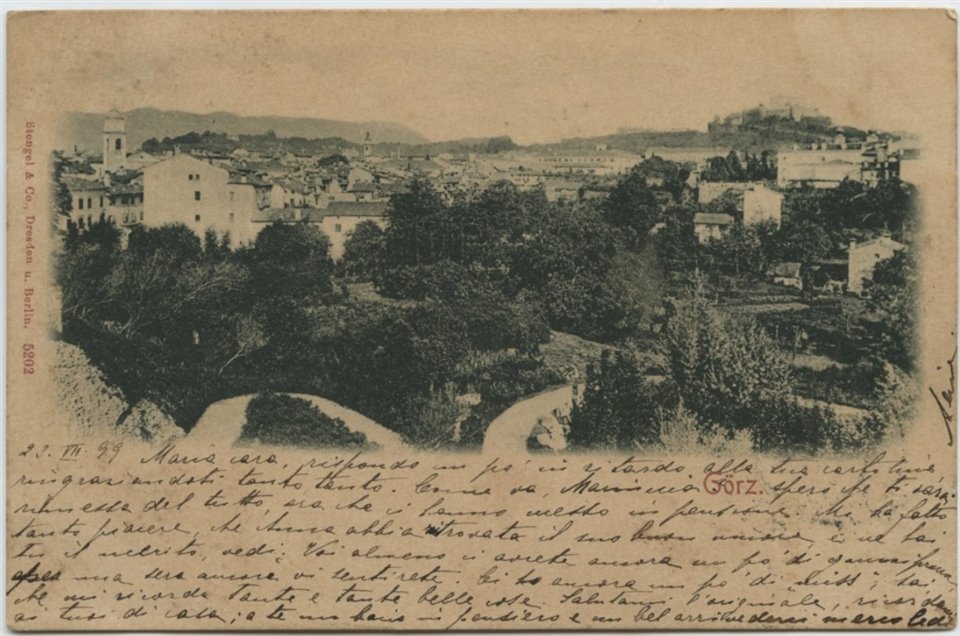 Stengel & Co., Dresden u. Berlin. 5202
Görz.
23. VII. 99 Maria cara, rispondo un po' in ritardo alla tua cartolina
ringraziandoti tanto tanto. Come va, spero che ti sarai
rimessa del tutto, ora che hanno messo in pensione. Mi ha fatto
tanto piacere, che Anna abbia ritrovata il suo buon umore, e ne hai
tu il merito, vedi. Voi almeno ci avrete ancora un po' di
una sera ancora vi sentirete. ancora un po' di sai,
che mi ricorda tante e tante belle cose. Salutami l'originale, ricordami
ai tuoi di casa; a te un bacio in pensiero e un bel arrivederci